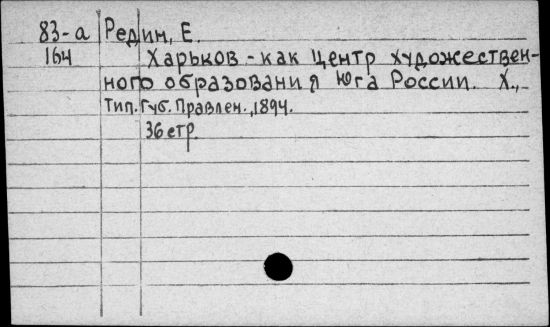 83-а Редин, Е.
164 Харьков - как центр художествен-
ного образования Юга России. Х.,
Тип. Губ. Правлен., 1894.
36 стр.